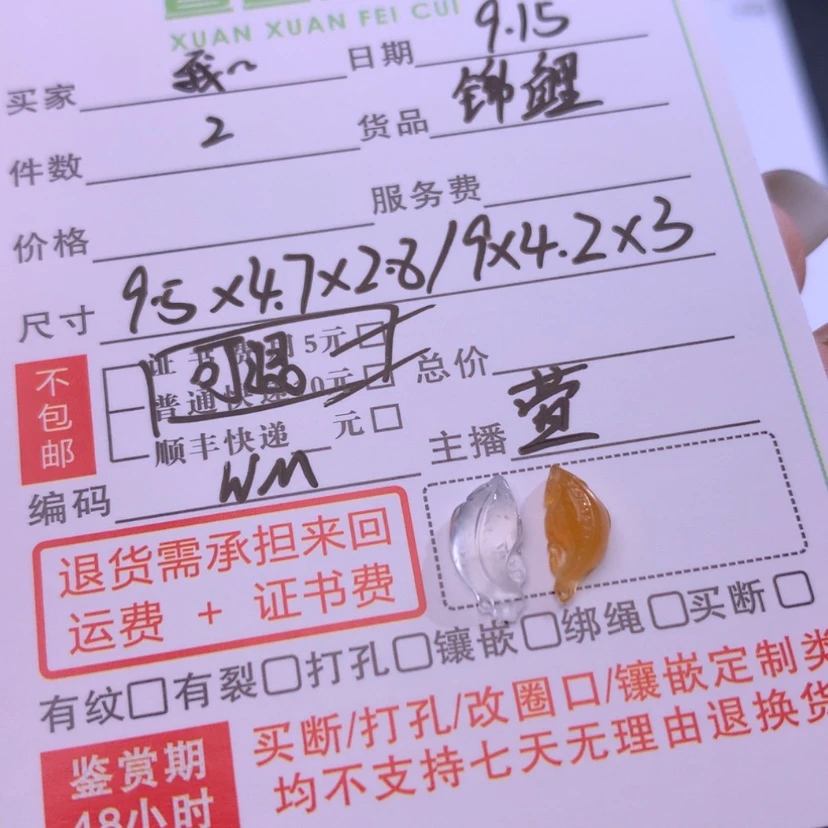 XUAN XUAN FEI CUI
买家 我~ 日期 9.15
件数 2 货品 锦鲤
价格 服务费
尺寸 9.5×4.7×2.8/9×4.2×3
不包邮
证书费 5元
普通快递 0元
可退
总价
顺丰快递 元
主播 萱
编码 WM
退货需承担来回
运费 + 证书费
有纹 有裂 打孔 镶嵌 绑绳 买断
鉴赏期
48小时
买断/打孔/改圈口/镶嵌定制类
均不支持七天无理由退换货